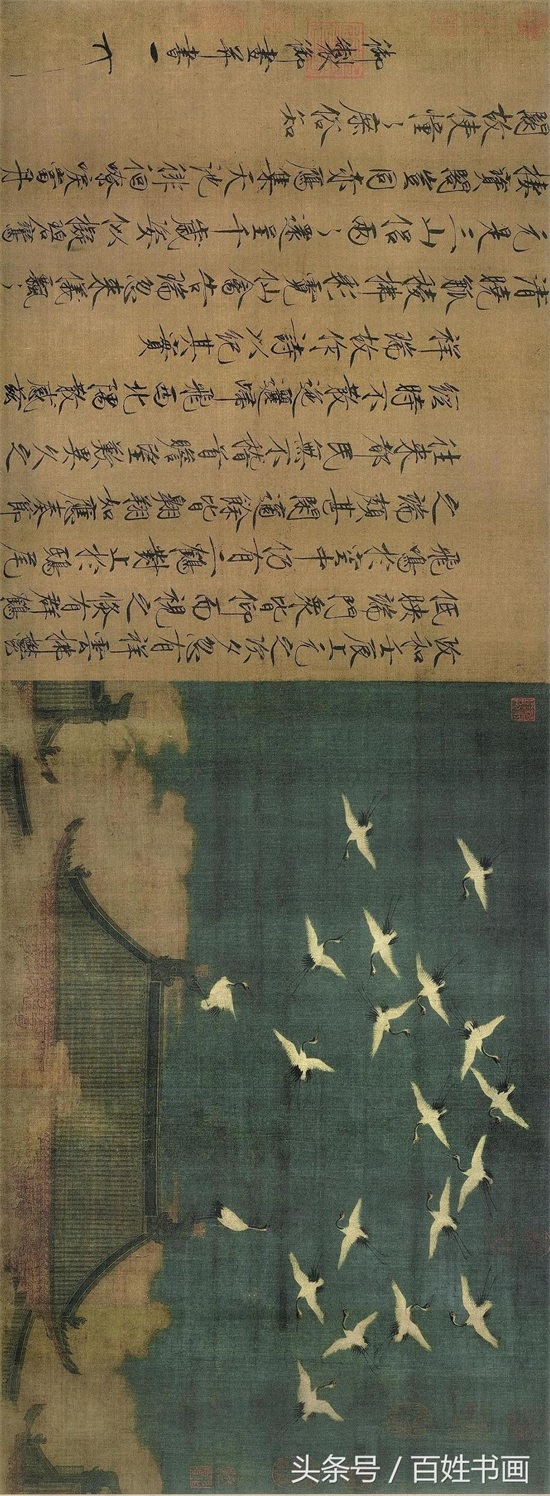 政和壬辰上元之次夕忽有祥雲拂鬱
低映端門衆皆仰而視之倏有群鶴
飛鳴於空中仍有二鶴對止於鴟尾
之端頗甚閑適餘皆翱翔如應奏節
往來都民無不稽首瞻望歎異久之
經時不散迤邐歸飛西北隅散感茲
祥瑞故作詩以紀其實
清曉觚稜拂彩霓仙禽告瑞忽來儀飄〻
元是三山侶兩〻還呈千歲姿似擬碧鸞
棲寶閣豈同赤鴈集天池徘徊嘹唳當丹
闕故使憧〻庶俗知
御製御畫并書
头条号 / 百姓书画